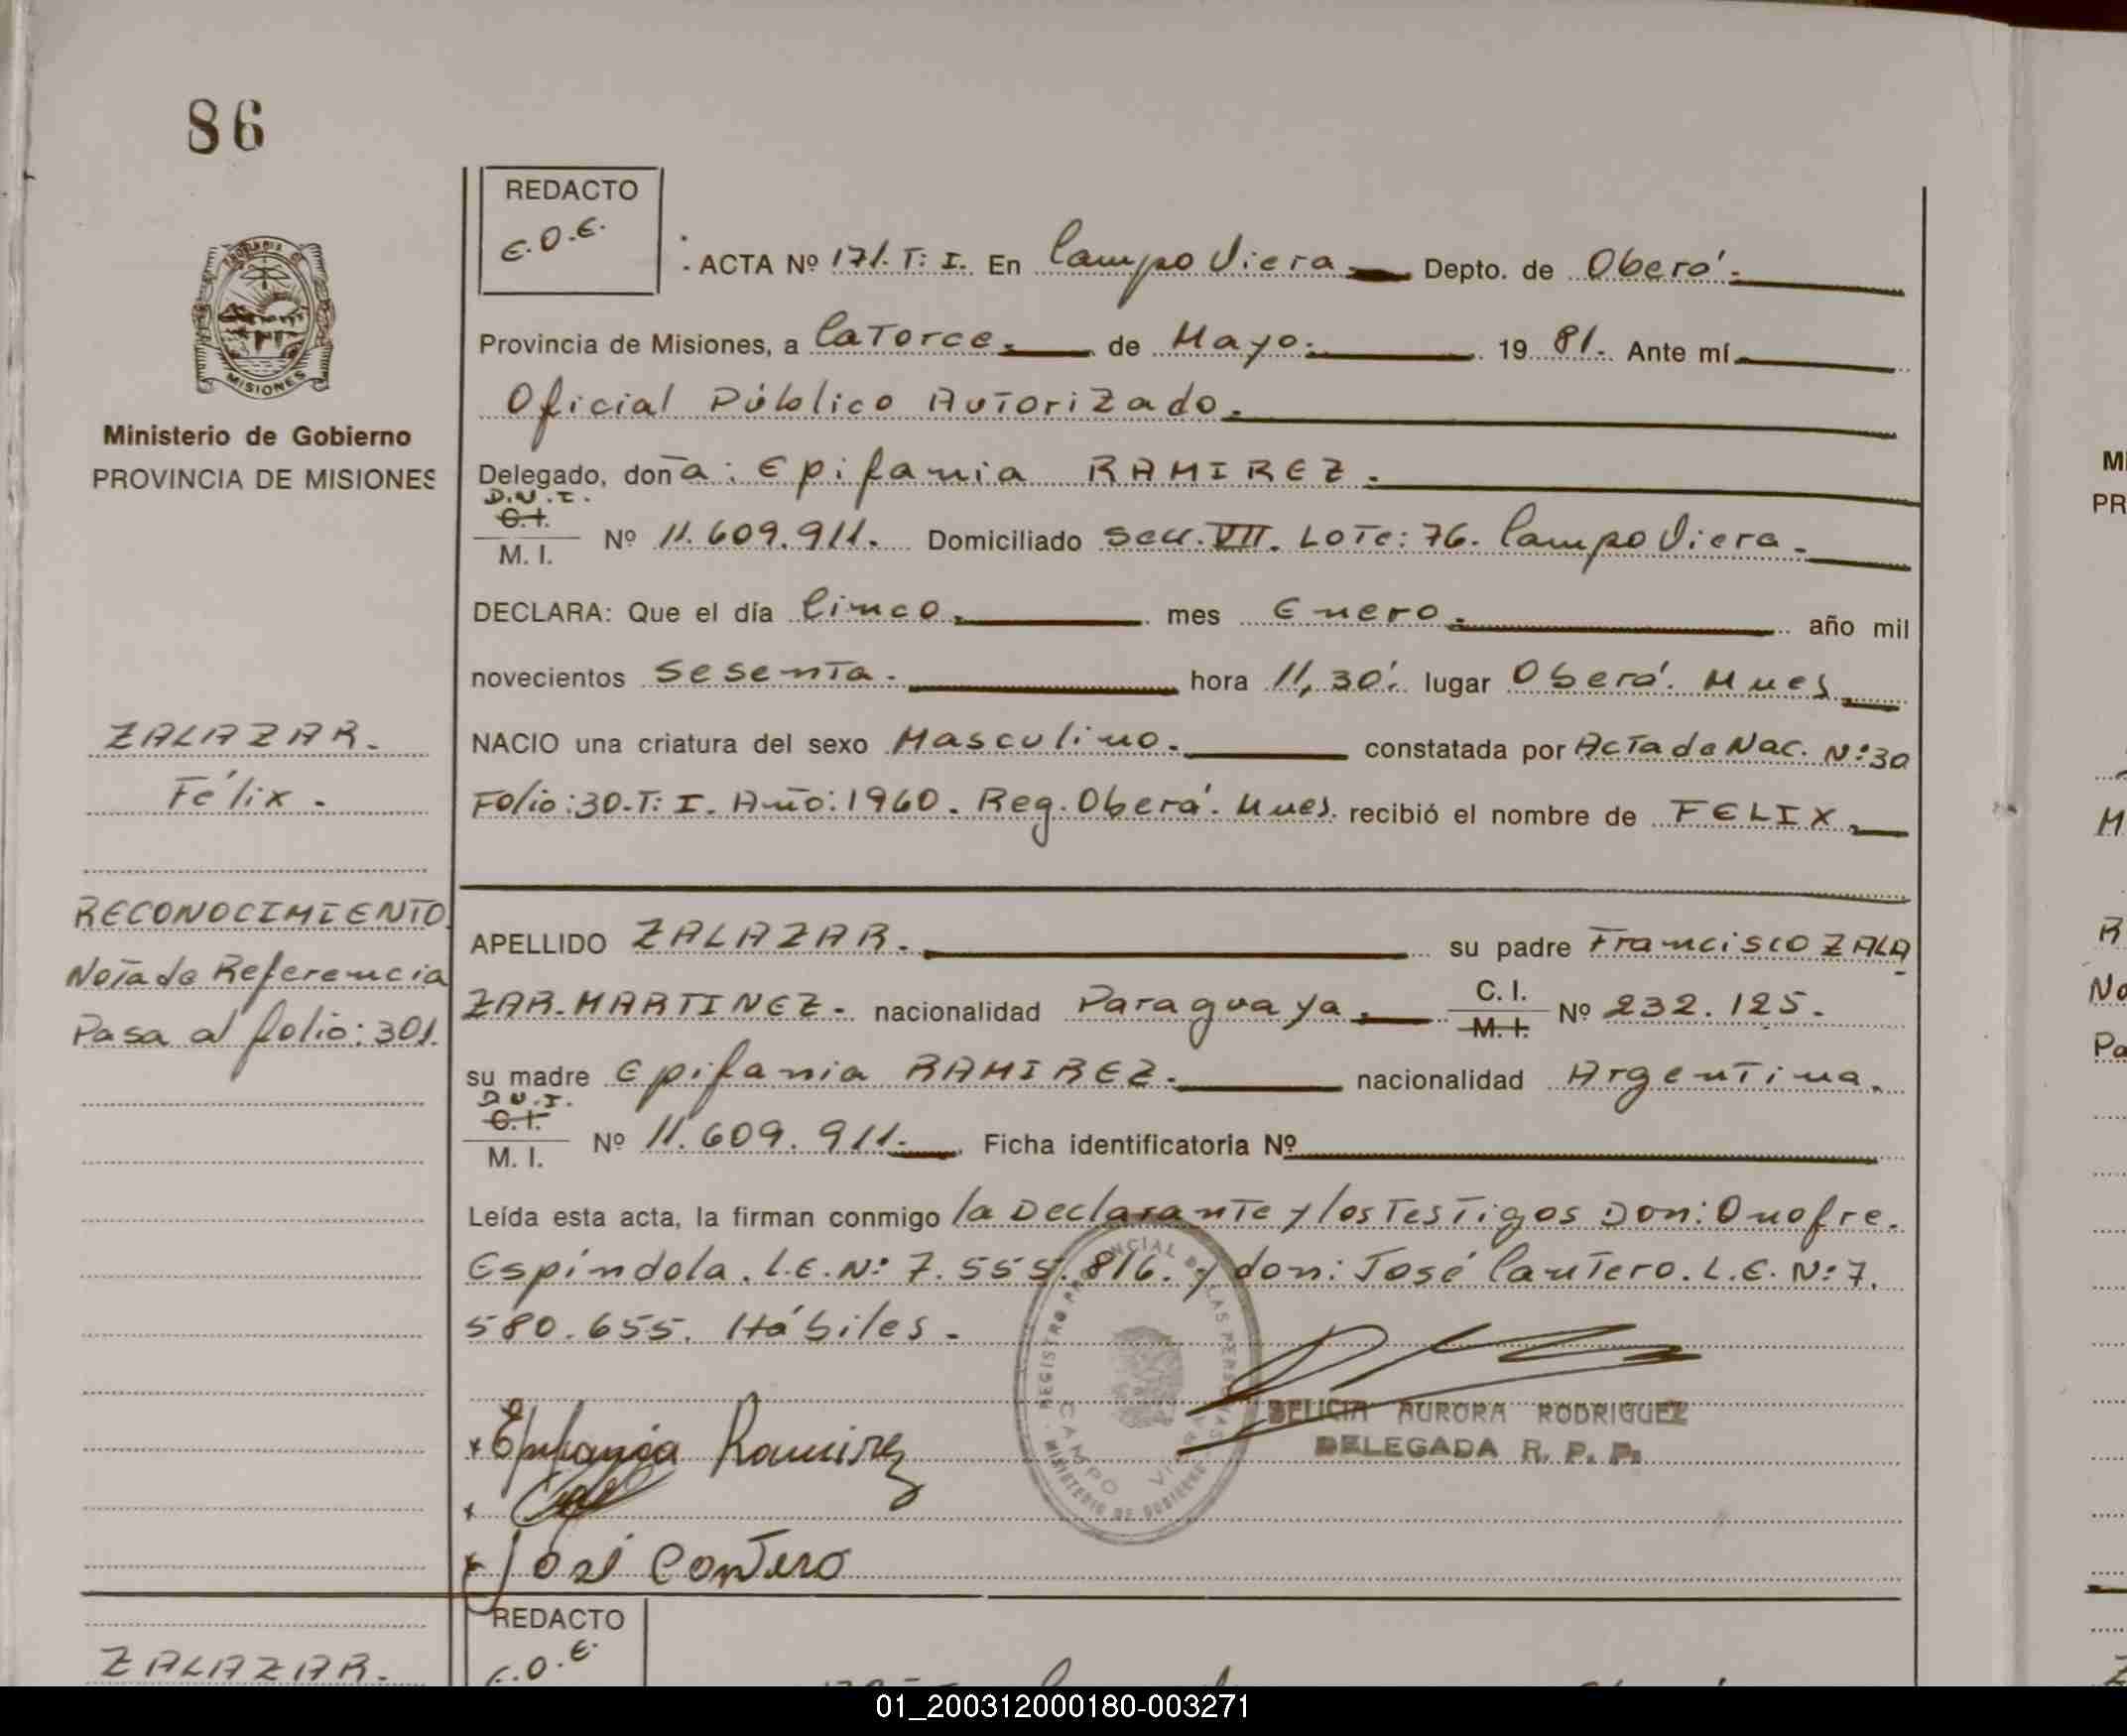 86
REDACTO
E.O.E.
ACTA Nº 171. T: I. En Campo Viera Depto. de Oberá.
Provincia de Misiones, a Catorce. de Mayo. 19 81. Ante mí
Oficial Público Autorizado.
Delegado, doña: Epifania RAMIREZ.
D.N.I.
C.I.
M. I. Nº 11.609.911. Domiciliado Secc. VII. LOTE: 76. Campo Viera.
DECLARA: Que el día Cinco. mes Enero. año mil
novecientos Sesenta. hora 11,30'. lugar Oberá. Mnes
NACIO una criatura del sexo Masculino. constatada por Acta de Nac. Nº:30
Folio:30.T: I. Año:1960. Reg. Oberá. Mnes. recibió el nombre de FELIX.
APELLIDO ZALAZAR. su padre Francisco ZALA
ZAR. MARTINEZ. nacionalidad Paraguaya. C. I. M. I. Nº 232.125.
su madre Epifania RAMIREZ. nacionalidad Argentina.
D.N.I.
C.I.
M. I. Nº 11.609.911. Ficha identificatoria Nº
Leída esta acta, la firman conmigo la Declarante y los Testigos Don: Onofre.
Espíndola. L.E. Nº 7.555.816. y don: José Cantero. L.E. Nº:7.
580.655. Hábiles.
Epifania Ramirez
José Contero
REGISTRO PROVINCIAL DE LAS PERSONAS
MINISTERIO DE GOBIERNO
CAMPO VIERA
DELICIA AURORA RODRIGUEZ
DELEGADA R. P. P.
MISIONES
Ministerio de Gobierno
PROVINCIA DE MISIONES
ZALAZAR.
Félix.
RECONOCIMIENTO
Nota de Referencia
Pasa al folio: 301.
REDACTO
E.O.E.
ZALAZAR.
M
PR
M
R
No
Pa
01_200312000180-003271